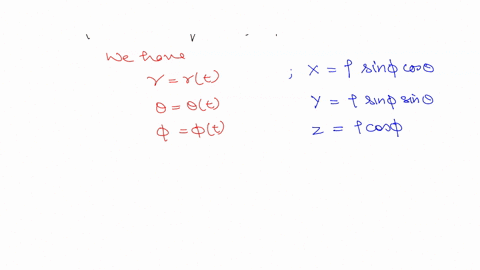 We have
r = r(t) ; x = ρ sinϕ cosθ
θ = θ(t) y = ρ sinϕ sinθ
ϕ = ϕ(t) z = ρ cosϕ